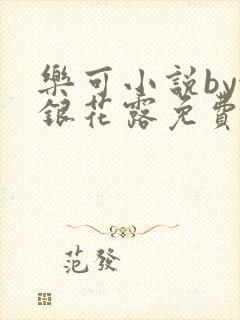 樂可小說by
銀花露免費
范發